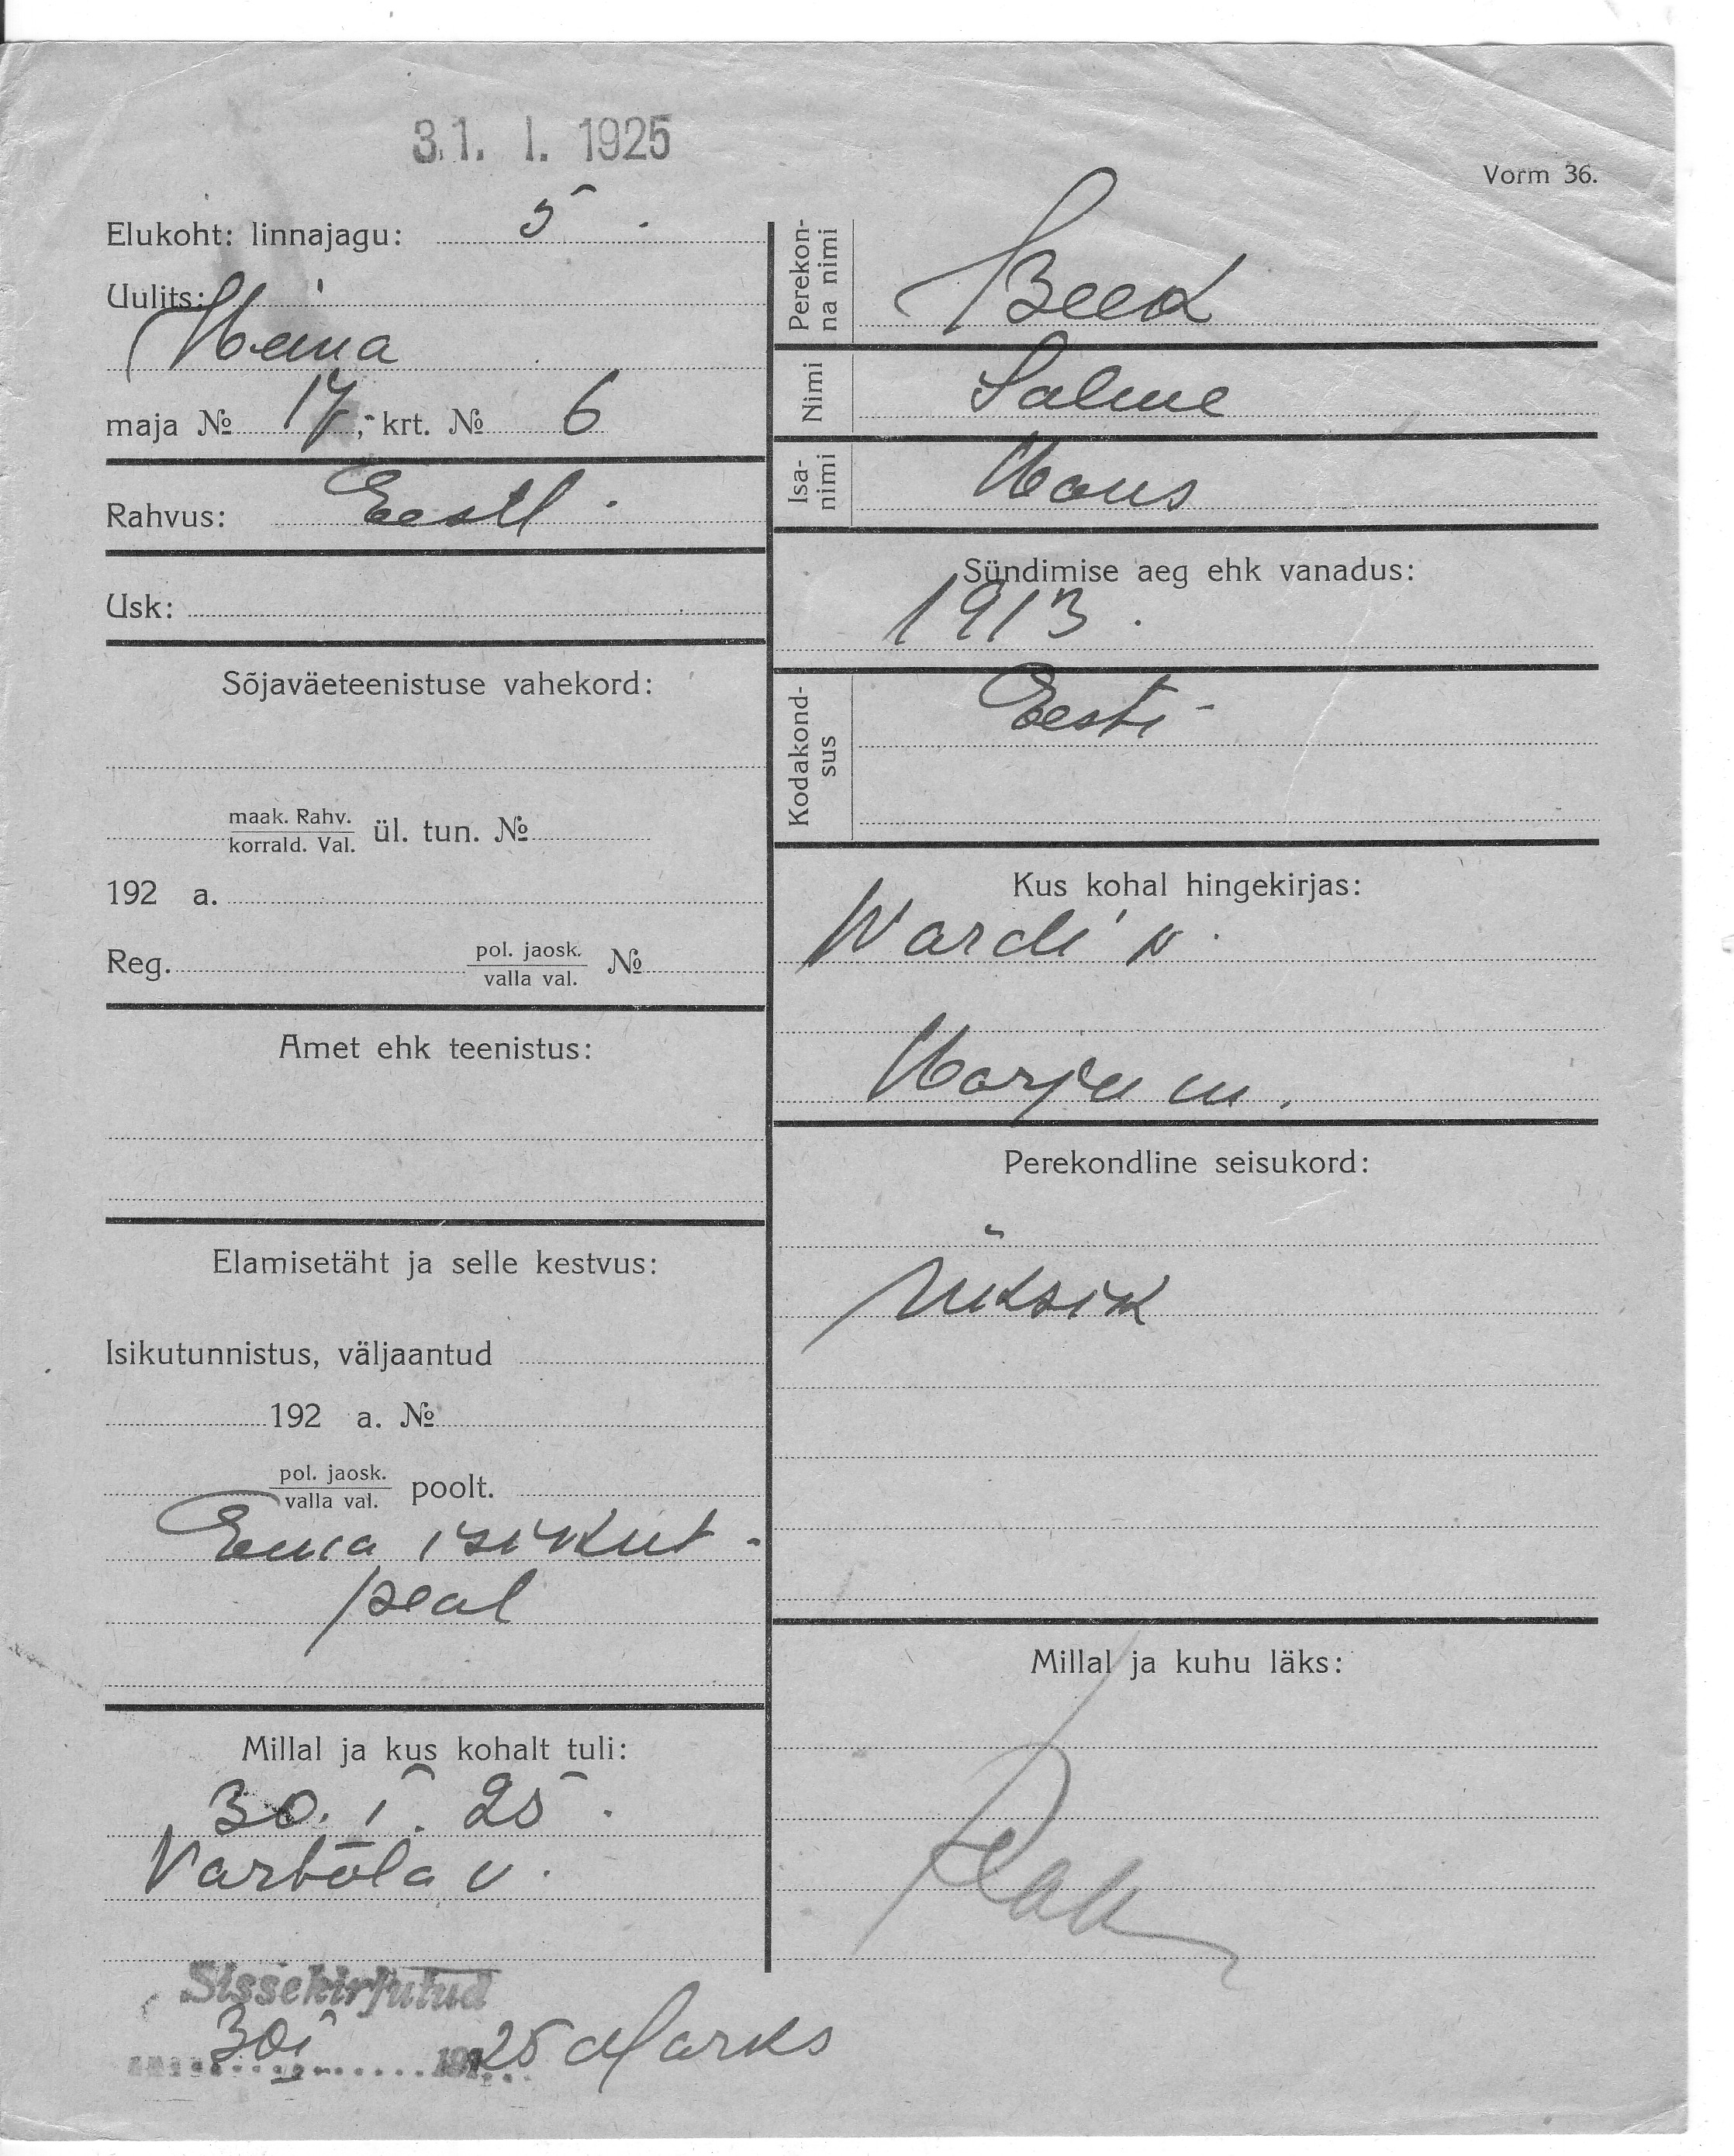 31. I. 1925
Vorm 36.
Elukoht: linnajagu: 5.
Uulits:
Heina
maja № 17, krt. № 6
Rahvus: Eesti
Usk:
Sõjaväeteenistuse vahekord:
maak. Rahv.
korrald. Val. ül. tun. №
192 a.
Reg. pol. jaosk. №
valla val.
Amet ehk teenistus:
Elamisetäht ja selle kestvus:
Isikutunnistus, väljaantud
192 a. №
pol. jaosk. poolt.
valla val.
Ema isikut-
peal
Millal ja kus kohalt tuli:
30. I. 25.
Varbola v.
Sissekirjutud
30 I 1925 Marks
Perekon-
na nimi
Beek
Nimi Salme
Isa-
nimi
Hans
Sündimise aeg ehk vanadus:
1913.
Kodakond-
sus
Eesti
Kus kohal hingekirjas:
Wardi v.
Harju m.
Perekondline seisukord:
Üksik
Millal ja kuhu läks: